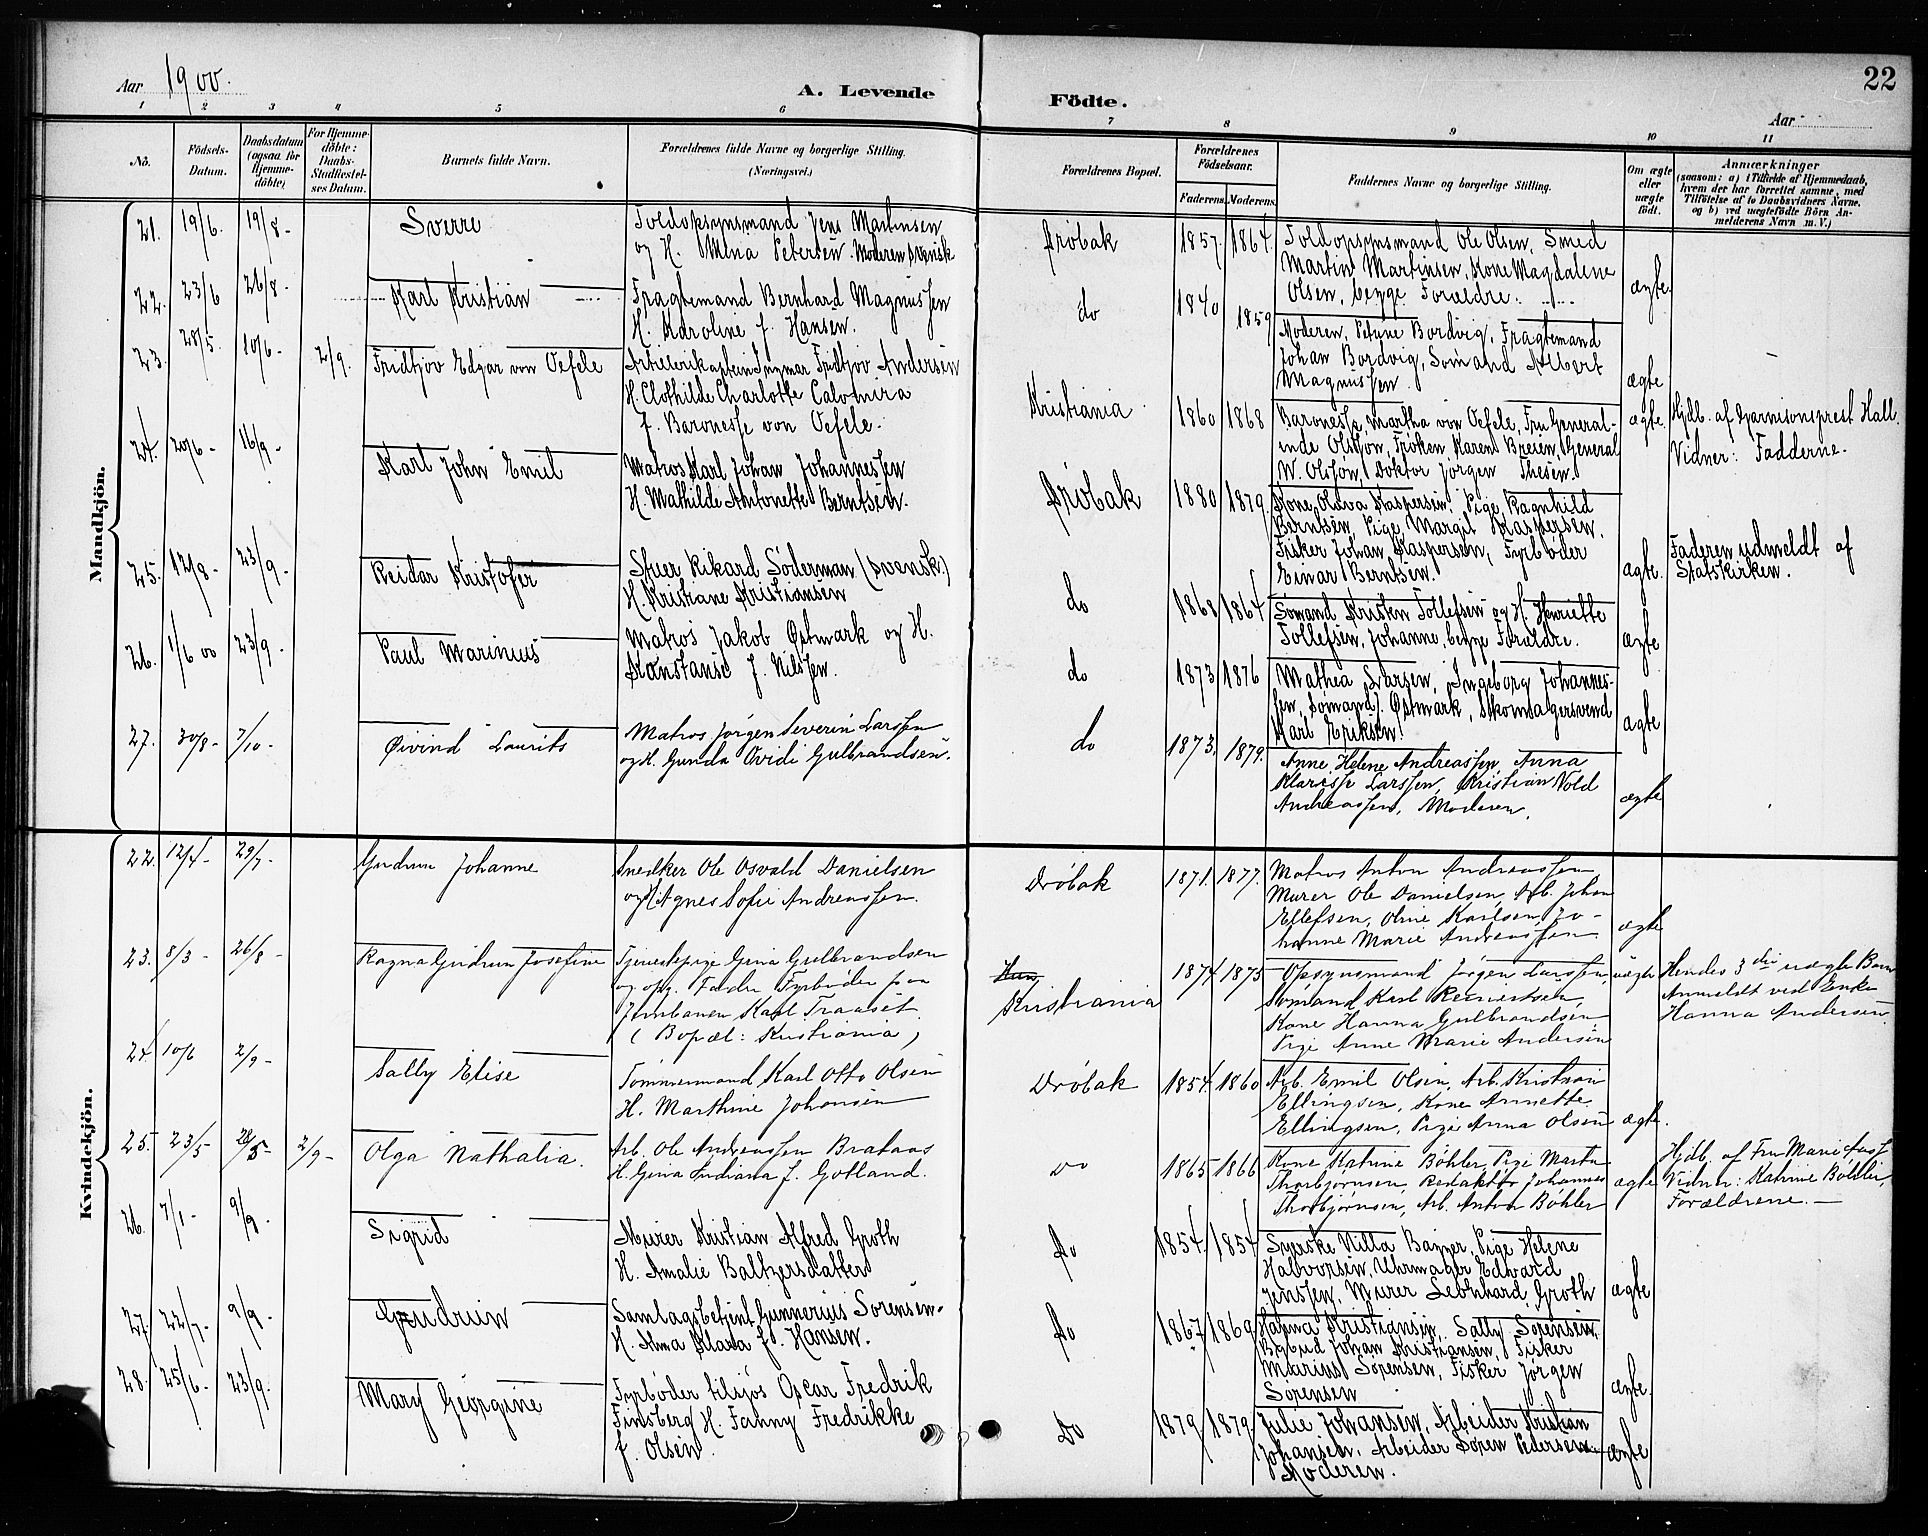 Aar 1900.
A. Levende Födte.
22
Aar
1 2 3 4 5 6 7 8 9 10 11
No.
Födsels-Datum.
Daabsdatum (ogsaa for Hjemme-döbte)
For Hjemme-döbte: Daabs-Stadfæstel-ses Datum.
Barnets fulde Navn.
Forældrenes fulde Navne og borgerlige Stilling.
(Næringsvei.)
Forældrenes Bopæl.
Forældrenes Födselsaar.
Faderens. Moderens.
Faddernes Navne og borgerlige Stilling.
Om ægte eller uægte födt.
Anmærkninger
(saasom: a) i Tilfælde af Hjemmedaab, hvem der har forrettet samme, med Tilföielse af to Daabsvidners Navne. og b) ved uægtefödte Börn An-melderens Navn m. V.)
Mandkjön.
21. 19/6. 19/8- Sverre
Toldopsynsmand Jens Martinsen
og H. Mina Petersen. Moderen svensk
Drøbak 1857. 1864.
Toldopsynsmand Ole Olsen, Smed
Martin Martinsen, Kone Magdalene
Olsen, begge Forældre.
ægte.
22. 23/6 26/8- Karl Kristian
Fragtemand Bernhard Magnussen
H. Karoline f. Hansen.
do 1840 1859
Moderen, Petrine Bordvig, Fragtemand
Johan Bordvig, Sømand Albert
Magnussen.
ægte
23. 28/5. 10/6- 2/9. Fridtjov Edgar von Oefele
Artillerikaptein Ingmar Fridtjov Andersen
H. Clothilde Charlotte Calomira
f. Baronesse von Oefele.
Kristiania 1860 1868
Baronesse Martha von Oefele, Fru General-
inde Olssøn, Frøken Karen Breien, General
W. Olssøn, Doktor Jørgen Thesen.
ægte.
Hjdb. af Garnisonsprest Hall.
Vidner: Fadderne.
24. 20/6- 16/9- Karl John Emil
Matros Karl Johan Johannessen
H. Mathilde Antonette Berntsen.
Drøbak 1880 1879.
Kone Olava Kaspersen, Pige Ragnhild
Berntsen, Pige Margit Kaspersen.
Fisker Johan Kaspersen, Fyrbøder
Einar Berntsen.
ægte.
25. 12/8- 23/9- Reidar Kristofer
Stuer Rikard Söderman (svensk.)
H. Kristiane Kristiansen
do 1868 1864
Sømand Kristen Tollefsen og H. Henriette
Tollefsen, Johanne, begge Forældre.
ægte
Faderen udmeldt af
Statskirken.
26. 1/6 00 23/9- Paul Marinius
Matros Jakob Østmark og H.
Konstanse f. Nilssen.
do 1873 1876
Mathea Larsen, Ingeborg Johannes-
sen, Sømand J. Østmark, Skomagersvend
Karl Eriksen.
ægte
27. 30/8- 7/10- Øivind Laurits
Matros Jørgen Severin Larssen
og H. Gunda Ovidi Gulbrandsen.
do 1873. 1879.
Anne Helene Andreassen, Anna
Klarisse Larssen, Kristian Vold
Andreassen, Moderen.
ægte
Kvindekjön.
22. 12/4- 29/7- Gudrun Johanne
Snedker Ole Osvald Danielsen
og H. Agnes Sofie Andreassen.
Drøbak 1871. 1877.
Matros Anton Andreassen
Murer Ole Danielsen, Arb. Johan
Ellefsen, Oline Karlsen, Jo-
hanne Marie Andreassen.
ægte
23. 8/3- 26/8- Ragna Gudrun Josefine
Tjenestepige Gina Gulbrandsen
og opg. Fader Fyrbøder paa
Jernbanen Karl Traaset
(Bopæl: Kristiania)
Kristiania 1874 1875
Opsynsmand Jørgen Larssen,
Sømand Karl Reiertsen,
Kone Hanna Gulbrandsen
Pige Anne Marie Andersen
uægte
Hendes 3die uægte Barn
Anmeldt ved Enke
Hanna Andersen.
24. 10/6 2/9- Sally Elise
Tømmermand Karl Otto Olsen
H. Marthine Johansen
Drøbak 1854. 1860
Arb. Emil Olsen, Arb. Kristian
Ellingsen, Kone Annette
Ellingsen, Pige Anna Olsen
ægte.
25. 23/5- 28/5- 2/9- Olga Nathalia.
Arb. Ole Andreassen Brataas
H. Gina Indiana f. Gotland.
do 1865 1866
Kone Katrine Bøhler, Pige Marta
Thorbjørnsen, Redaktør Johannes
Thorbjørnsen, Arb. Anton Bøhler
ægte
Hjdb. af Fru Marie
Vidner: Katrine Bøhler,
Forældrene.
26. 7/1- 9/9. Sigrid
Murer Kristian Alfred Groth
H. Amalie Baltzersdatter
do 1854. 1854
Syerske Villa Bauer, Pige Helene
Halvorsen, Uhrmager Edward
Jenssen, Murer Leonhard Groth
ægte
27. 22/7- 9/9. Gudrun
Samlagsbetjent Gunnerius Sørensen.
H. Anna Klara f. Hansen.
do 1867 1869
Hanna Kristiansen, Sally Sørensen,
Bybud Johan Kristiansen, Fisker
Marius Sørensen, Fisker Jørgen
Sørensen
ægte.
28. 25/6- 23/9. Mary Georgine
Fyrbøder tilsjøs Oscar Fredrik
Finsberg H. Fanny Fredrikke
f. Olsen.
Do 1879 1879
Julie Johansen, Arbeider Kristian
Johansen, Arbeider Søren Pedersen
Moderen.
ægte